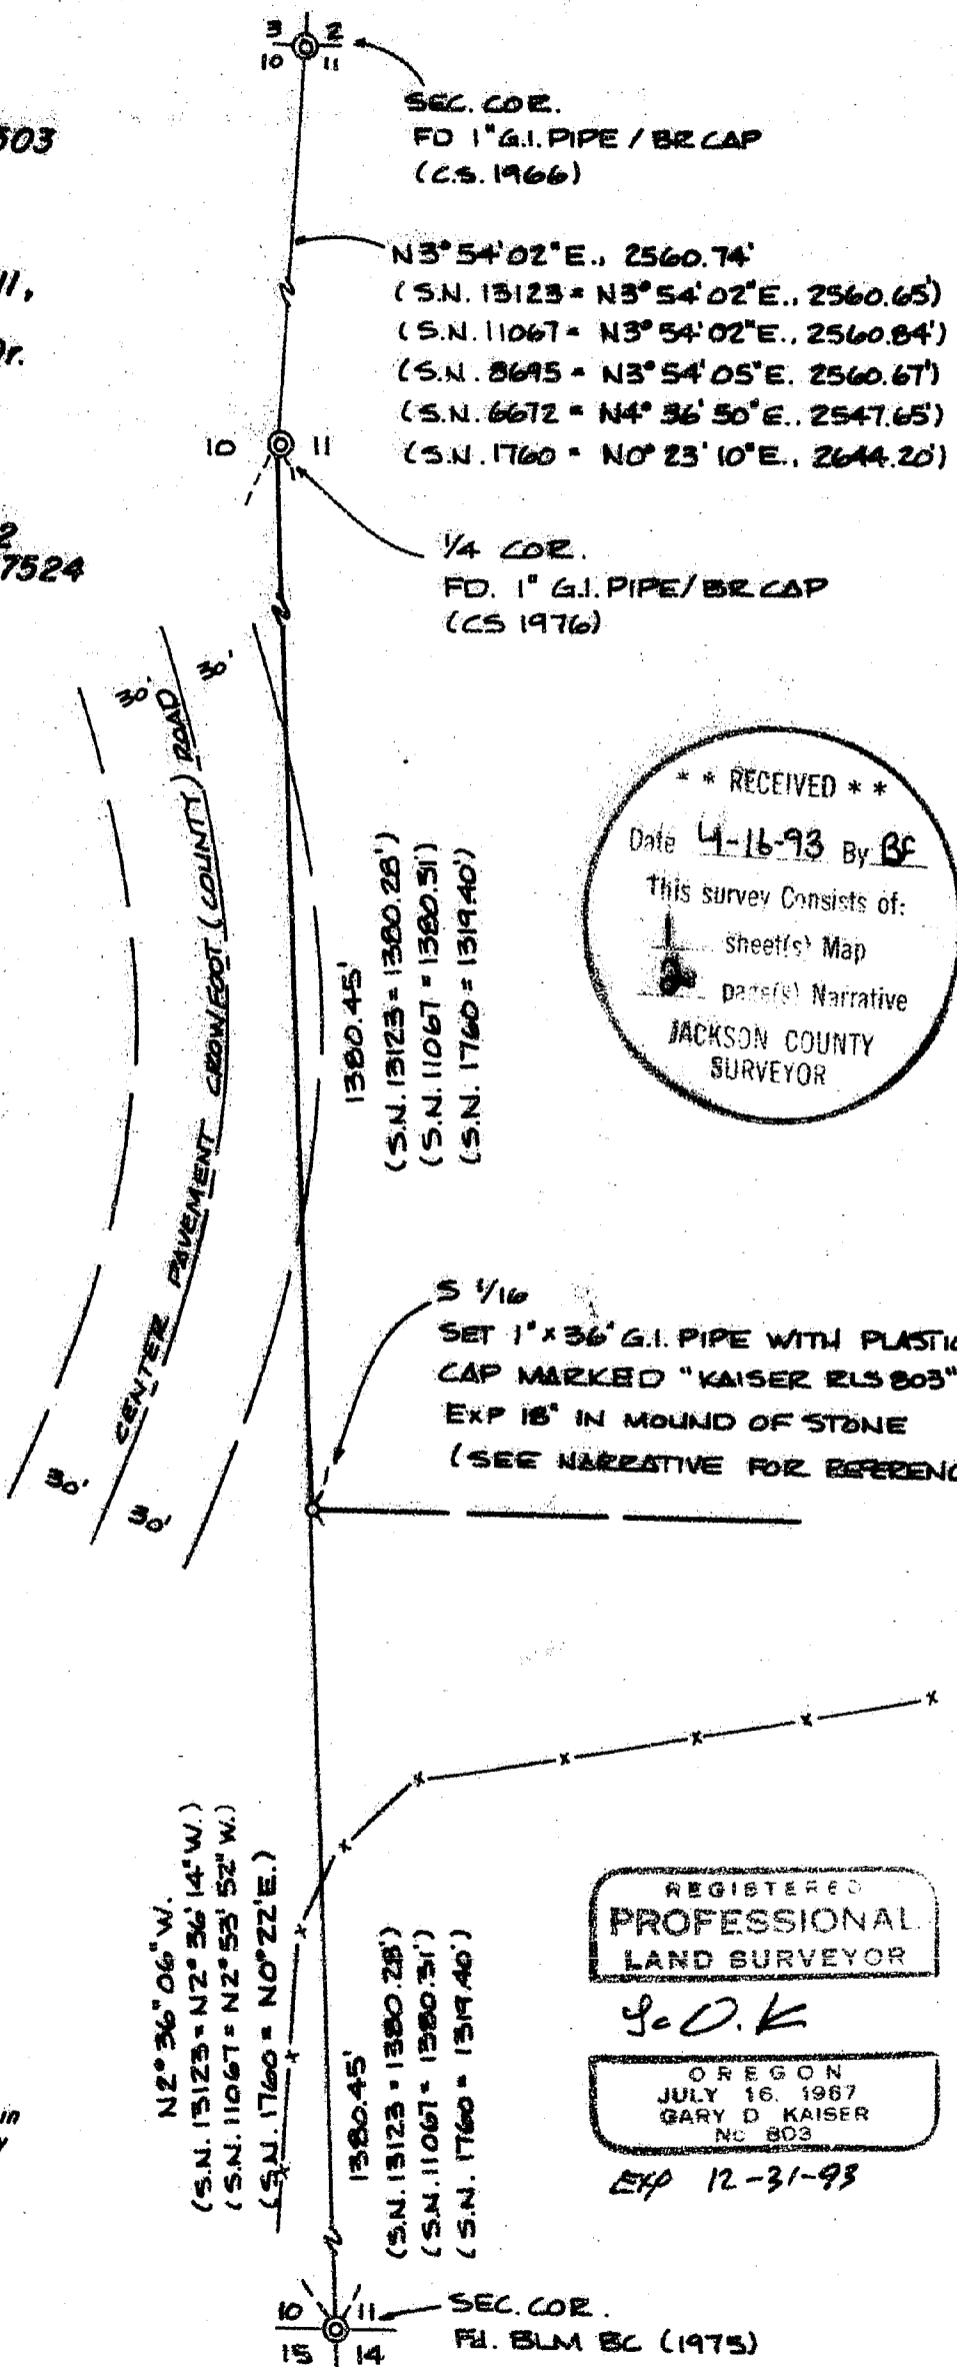 3 2
10 11
SEC. COR.
FD 1" G.I. PIPE / BR CAP
(C.S. 1966)
503
N3° 54' 02" E., 2560.74'
(S.N. 13123 = N3° 54' 02" E., 2560.65')
(S.N. 11067 = N3° 54' 02" E., 2560.84')
(S.N. 8695 = N3° 54' 05" E. 2560.67')
(S.N. 6672 = N4° 36' 50" E., 2547.65')
(S.N. 1760 = N0° 23' 10" E., 2644.20')
11,
Dr.
10 11
1/4 COR.
FD. 1" G.I. PIPE/BR CAP
(CS 1976)
2
7524
30' 30'
CENTER PAVEMENT CROWFOOT (COUNTY) ROAD
30'
30'
1380.45'
(S.N. 13123 = 1380.28')
(S.N. 11067 = 1380.31')
(S.N. 1760 = 1319.40')
* * RECEIVED * *
Date 4-16-93 By BC
This survey Consists of:
1 sheet(s) Map
page(s) Narrative
JACKSON COUNTY
SURVEYOR
S 1/16
SET 1" x 36" G.I. PIPE WITH PLASTIC
CAP MARKED "KAISER RLS 803"
EXP 18" IN MOUND OF STONE
(SEE NARRATIVE FOR REFERENC
N2° 36" 06" W.
(S.N. 13123 = N2° 36' 14" W.)
(S.N. 11067 = N2° 53' 52" W.)
(S.N. 1760 = N0° 22' E.)
1380.45'
(S.N. 13123 = 1380.28')
(S.N. 11067 = 1380.31')
(S.N. 1760 = 1319.40')
REGISTERED
PROFESSIONAL
LAND SURVEYOR
OREGON
JULY 16, 1967
GARY D KAISER
No 803
EXP 12-31-93
in
10 11
15 14
SEC. COR.
Fd. BLM BC (1975)